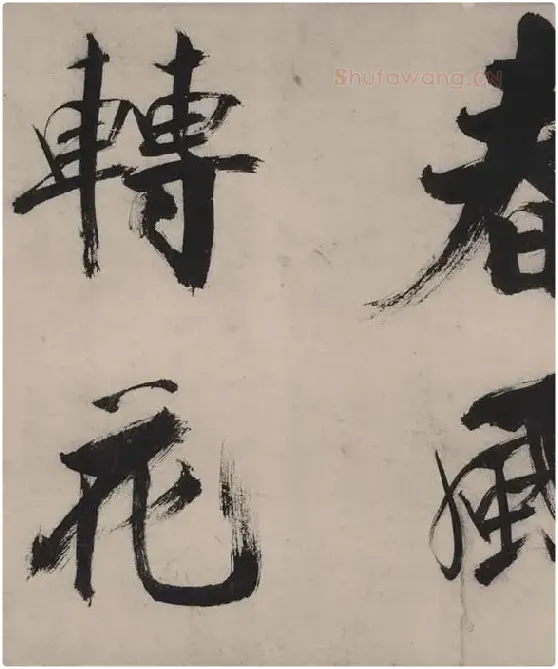 春風
轉花
Shufawang.CN